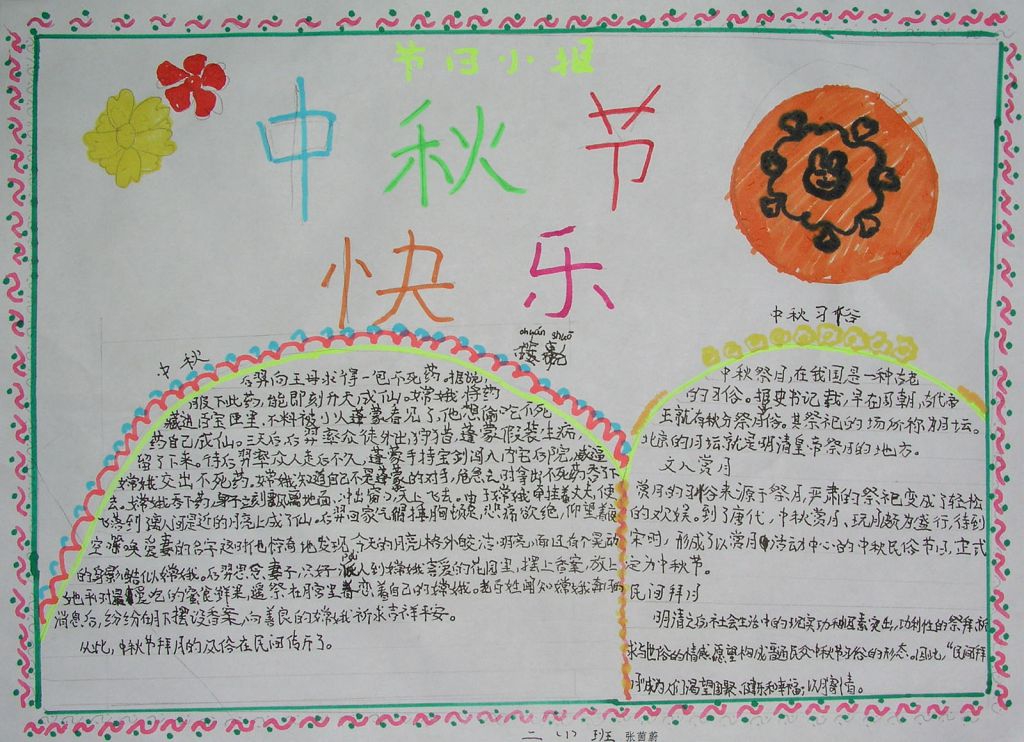 节日小报
中秋节
快乐
chuán shuō
中秋
后羿向王母求得一包不死药。据说，
服下此药，能即刻升天成仙。嫦娥将药
藏进百宝匣里，不料被小人蓬蒙看见了，他想偷吃不死
药自己成仙。三天后后羿率众徒外出狩猎，蓬蒙假装生病，
留了下来。待后羿率众人走后不久，蓬蒙手持宝剑闯入内宅后院，威逼
嫦娥交出不死药。嫦娥知道自己不是蓬蒙的对手，危急之时拿出不死药吞了下
去。嫦娥吞下药，身子立刻飘离地面、冲出窗口，向天上飞去。由于嫦娥牵挂着丈夫，便
飞落到离人间最近的月亮上成了仙。后羿回家气得捶胸顿足，悲痛欲绝，仰望着夜
空呼唤爱妻的名字，这时他惊奇地发现，今天的月亮格外皎洁明亮，而且有个晃动
的身影酷似嫦娥。后羿思念妻子，只好派人到嫦娥喜爱的花园里，摆上香案，放上
她平时最爱吃的蜜食鲜果，遥祭在月宫里眷恋着自己的嫦娥。老百姓闻知嫦娥奔月
消息后，纷纷在月下摆设香案，向善良的嫦娥祈求吉祥平安。
从此，中秋节拜月的风俗在民间传开了。
中秋习俗
中秋祭月，在我国是一种古老
的习俗。据史书记载，早在周朝，古代帝
王就有秋分祭月。其祭祀的场所称为月坛。
北京的月坛就是明清皇帝祭月的地方。
文人赏月
赏月的习俗来源于祭月，严肃的祭祀变成了轻松
的欢娱。到了唐代，中秋赏月、玩月颇为盛行，待到
宋时，形成了以赏月活动中心的中秋民俗节日，正式
定为中秋节。
民间拜月
明清之后，社会生活中的现实功利因素突出，功利性的祭拜、祈
求与世俗的情感、愿望构成普通民众中秋节习俗的形态。因此，“民间拜
月”成为人们渴望团聚、康乐和幸福；以月寄情。
二（1）班 张茜蔚